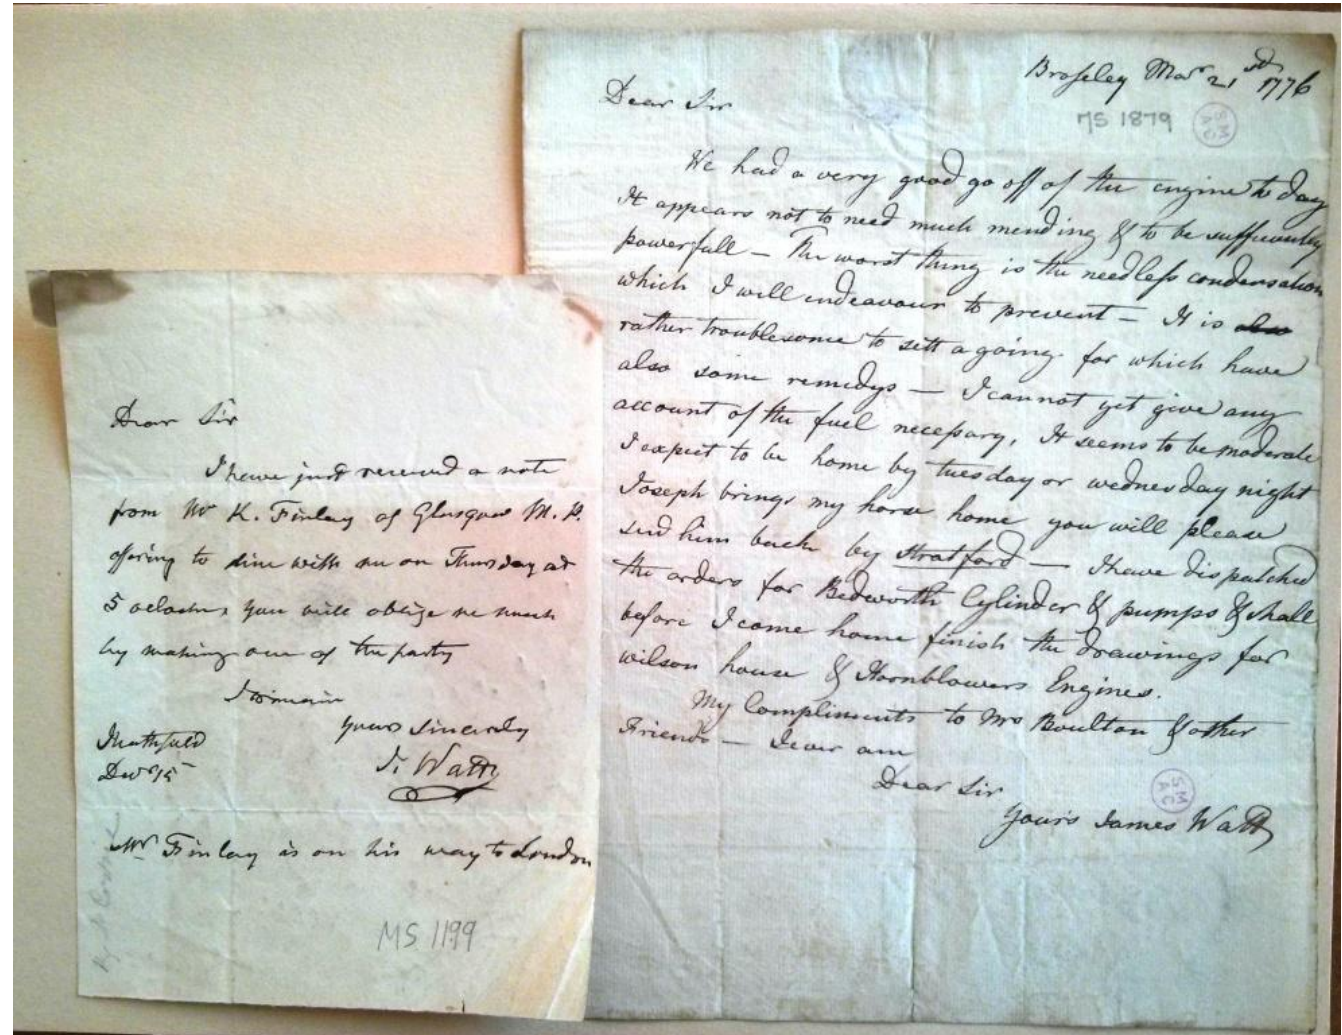 Dear Sir
I have just received a note
from Mr K. Finlay of Glasgow M.P.
offering to dine with me on Thursday at
5 oclock, you will oblige me much
by making one of the party
I remain
yours sincerely
J. Watt
Heathfield
Decr 15
Mr Finlay is on his way to London
MS 1199
Broseley Mar 21 1776
MS 1879
SMAC
Dear Sir
We had a very good go off of the engine to day
It appears not to need much mending & to be sufficiently
powerfull – The worst thing is the needless condensation
which I will endeavour to prevent – It is also
rather troublesome to sett a going for which have
also some remedys – I cannot yet give any
account of the fuel necessary, It seems to be moderate
I expect to be home by tuesday or wednesday night
Joseph brings my horse home you will please
send him back by Stratford – I have dispatched
the orders for Bedworth Cylinder & pumps & shall
before I come home finish the drawings for
wilson house & Hornblowers Engines.
My Compliments to Mrs Boulton & other
Friends – I ever am
Dear Sir
yours James Watt
SMAC